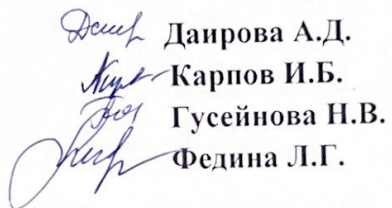 Даирова А.Д.
Карпов И.Б.
Гусейнова Н.В.
Федина Л.Г.